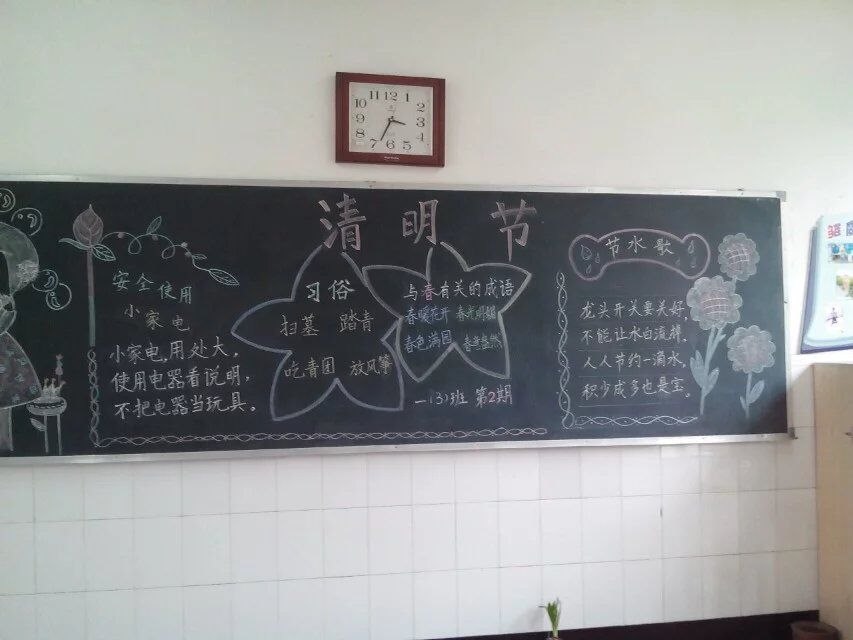 清明节
安全使用
小家电
小家电,用处大,
使用电器看说明,
不把电器当玩具。
习俗
扫墓 踏青
吃青团 放风筝
与春有关的成语
春暖花开 春光明媚
春色满园 春意盎然
一(3)班 第2期
节水歌
龙头开关要关好,
不能让水白流掉,
人人节约一滴水,
积少成多也是宝。
11 12 1
10 2
9 3
8 4
7 6 5